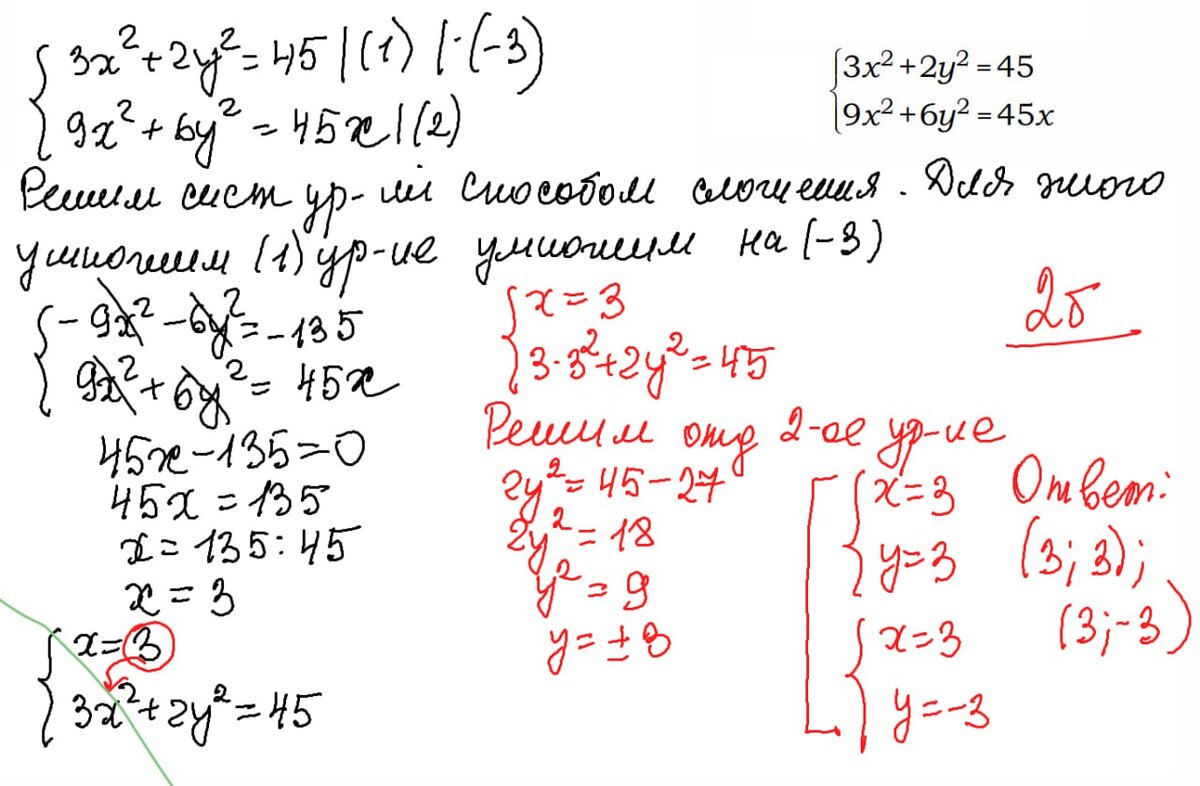 { 3x² + 2y² = 45 | (1) | · (-3)
9x² + 6y² = 45x | (2)
{ 3x² + 2y² = 45
9x² + 6y² = 45x
Решим сист ур-ий способом сложения. Для этого
умножим (1) ур-ие умножим на (-3)
{ - 9x² - 6y² = -135
9x² + 6y² = 45x
45x - 135 = 0
45x = 135
x = 135 : 45
x = 3
{ x = 3
3x² + 2y² = 45
{ x = 3
3 · 3² + 2y² = 45
Решим отд 2-ое ур-ие
2y² = 45 - 27
2y² = 18
y² = 9
y = ± 3
[ { x = 3
y = 3
{ x = 3
y = -3
2б
Ответ:
(3; 3);
(3; -3)